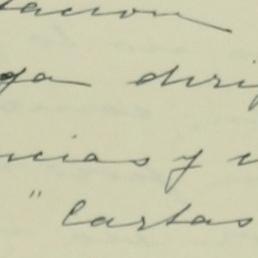 tacion
ga diri
ncias y u
" Cartas